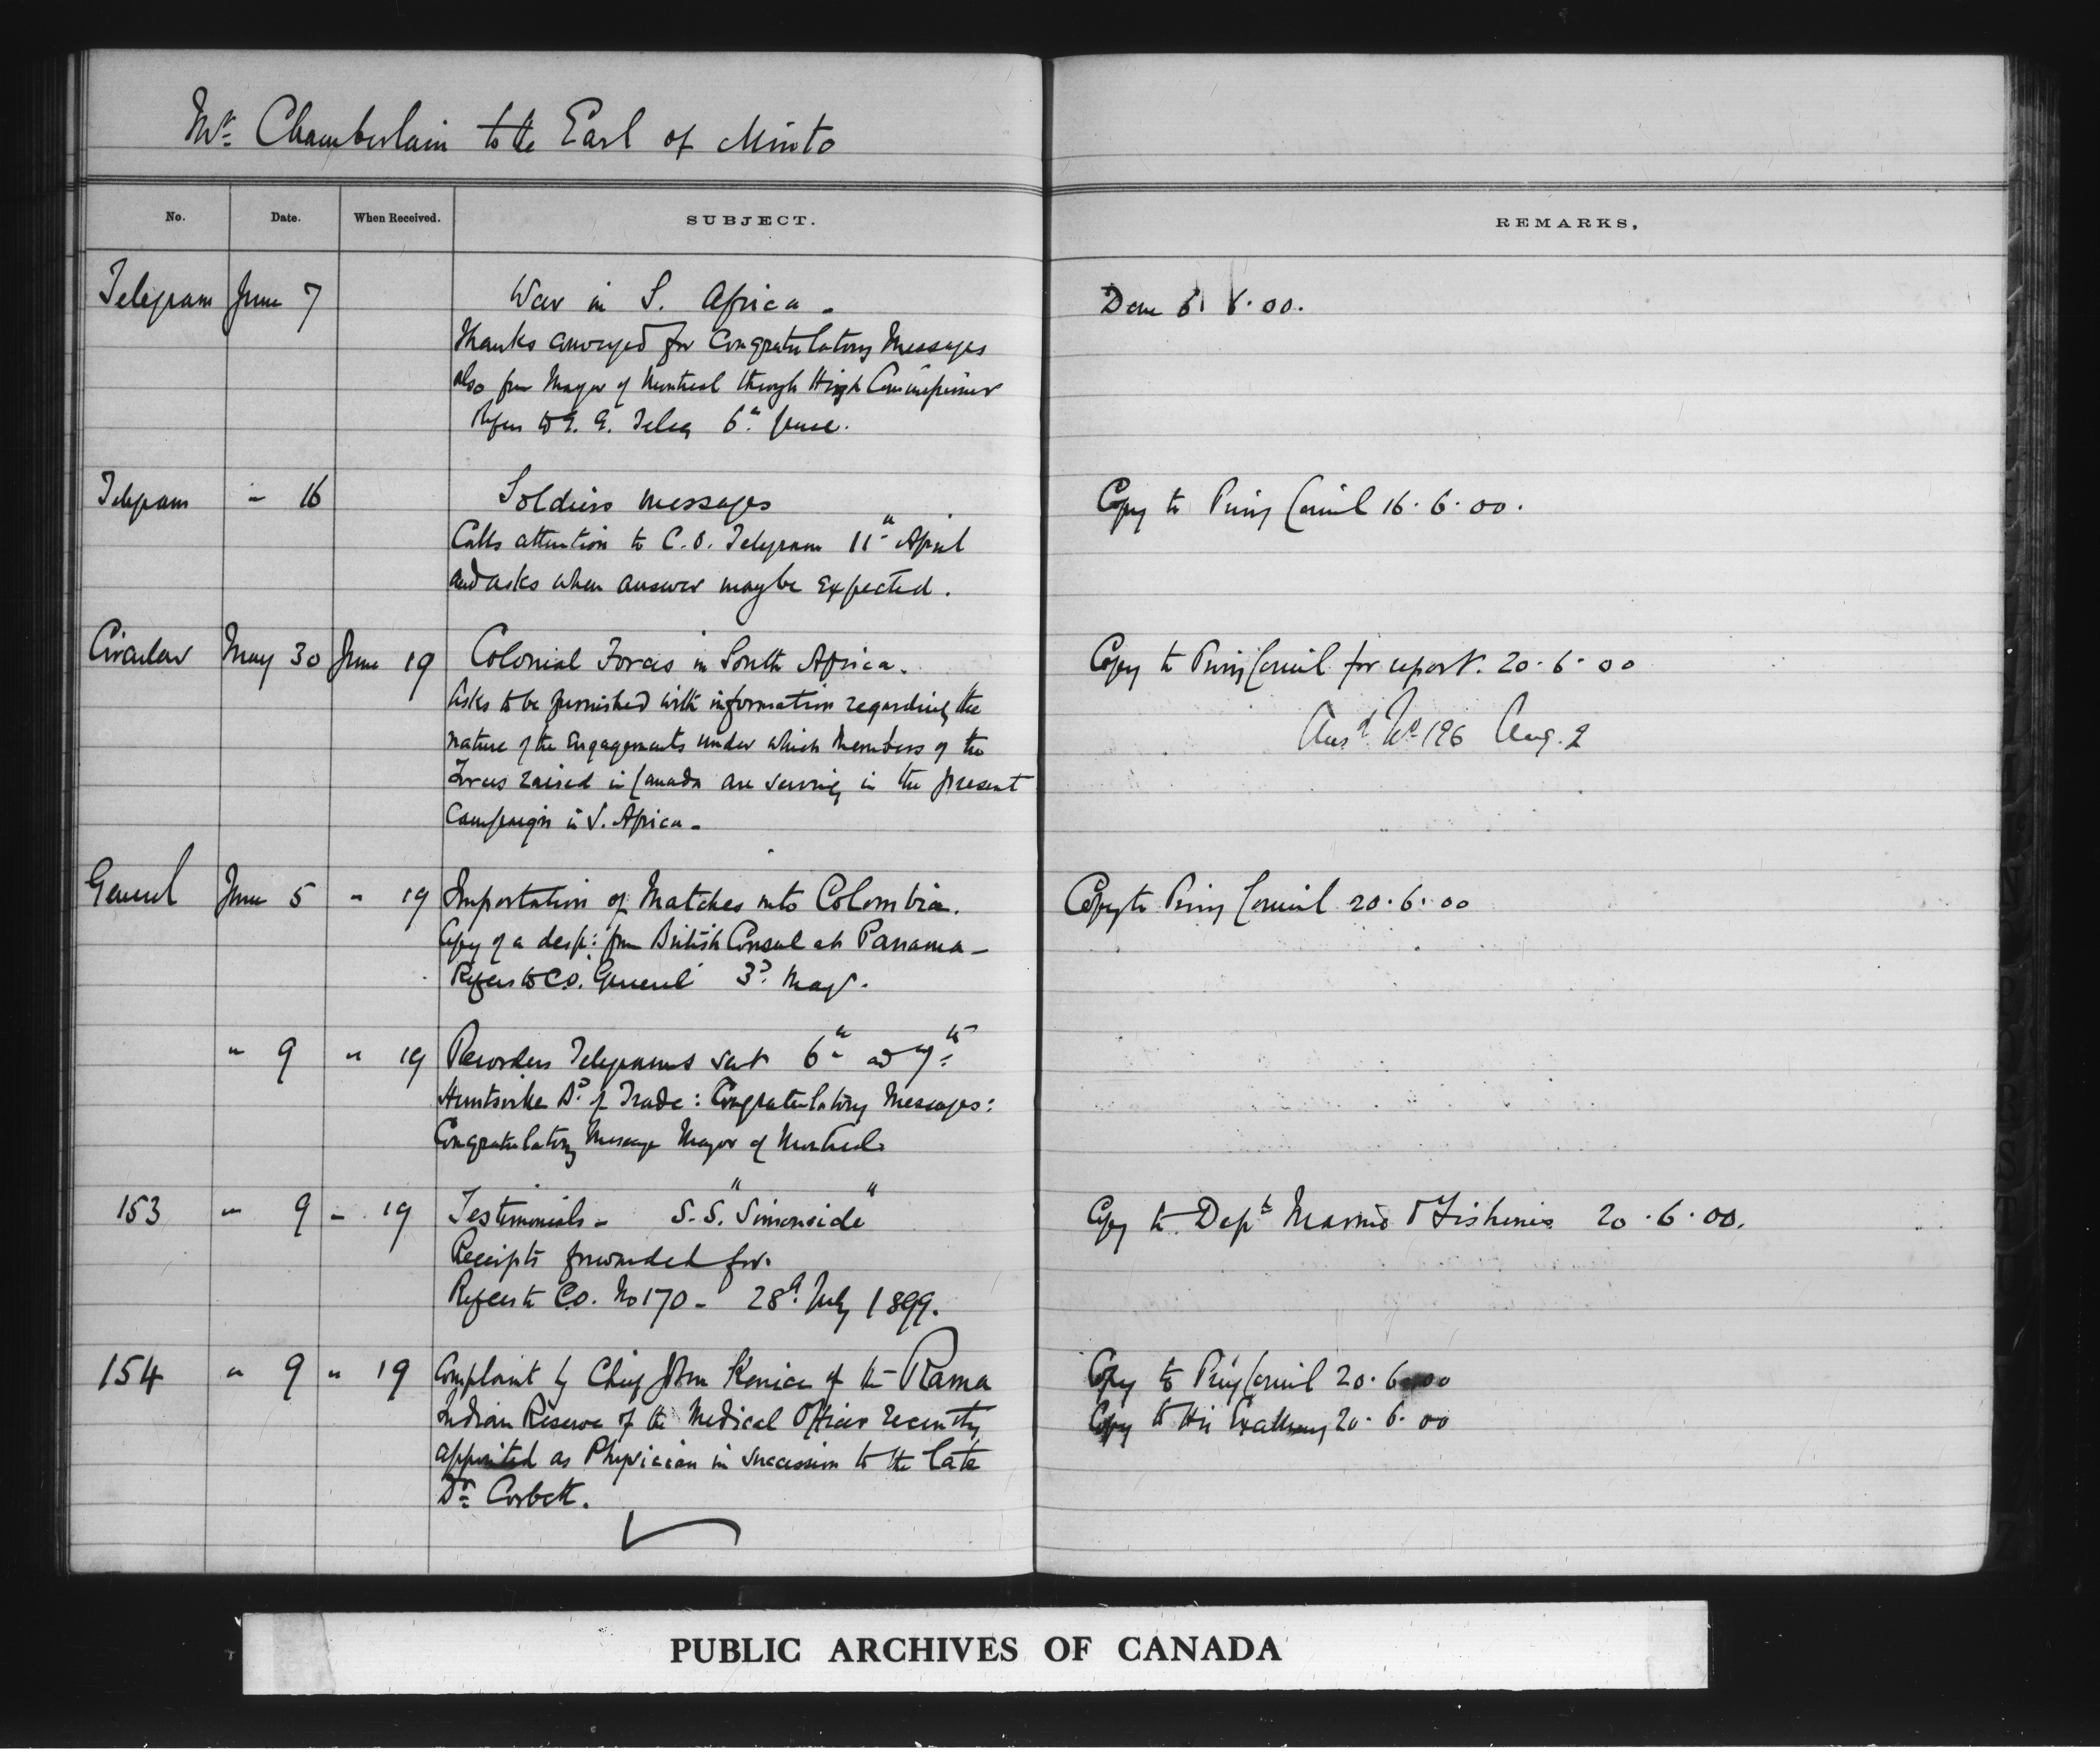 Mr. Chamberlain to the Earl of Minto
No. Date. When Received. SUBJECT. REMARKS.
Telegram June 7 War in S. Africa - Done 8.00.
Thanks conveyed for Congratulatory Messages
also from Mayor of Montreal through High Commissioner
Refers to G. G. Teleg 6th June.
Telegram " 16 Soldiers messages Copy to Privy Council 16.6.00.
Calls attention to C.O. Telegram 11th April
and asks when answer may be expected.
Circular May 30 June 19 Colonial Forces in South Africa. Copy to Privy Council for report. 20.6.00
Asks to be furnished with information regarding the
nature of the Engagements under which Members of the Ansd No 196 Aug. 2
Forces raised in Canada are serving in the present
Campaign in S. Africa -
General June 5 " 19 Importation of Matches into Colombia. Copy to Privy Council 20.6.00
Copy of a desp: from British Consul at Panama -
Refers to C.O. General 3d May.
" 9 " 19 Recorders Telegrams sent 6th and 7th
Huntsville Bd of Trade: Congratulatory Messages:
Congratulatory Message Mayor of Montreal.
153 " 9 " 19 Testimonials - S.S. "Simonside" Copy to Dept Marine & Fisheries 20.6.00.
Receipts forwarded for.
Refers to C.O. No 170 - 28th July 1899.
154 " 9 " 19 Complaint by Chief John Kenice of the Rama Copy to Privy Council 20.6.00
Indian Reserve of the Medical Officer recently Copy to His Excellency 20.6.00
appointed as Physician in succession to the late
Dr. Corbett.
PUBLIC ARCHIVES OF CANADA